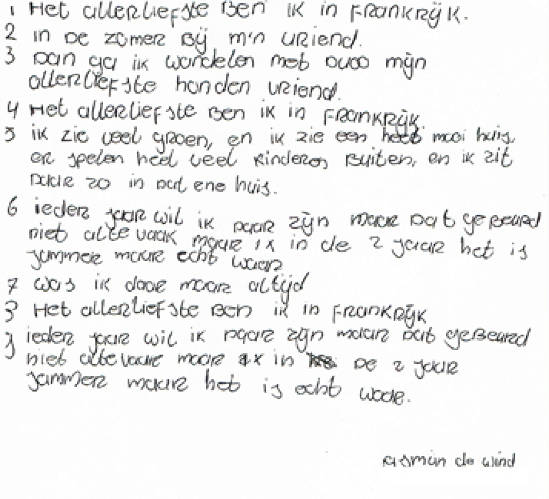 1 Het allerliefste Ben ik in Frankrijk.
2 in De zomer Bij m'n vriend.
3 Dan ga ik wandelen met ouso mijn
allerliefste honden vriend.
4 Het allerliefste Ben ik in Frankrijk
5 ik zie veel groen, en ik zie een heel mooi huis,
er spelen heel veel kinderen Buiten, en ik zit
Daar zo in Dat ene huis.
6 ieder jaar wil ik Daar zijn maar Dat gebeurd
niet alte vaak maar 1x in de 2 jaar het is
jammer maar echt waar
7 was ik daar maar altijd
8 Het allerliefste Ben ik in Frankrijk
9 ieder jaar wil ik Daar zijn maar Dat gebeurd
niet alte vaak maar 1x in De 2 jaar
jammer maar het is echt waar.
de wind